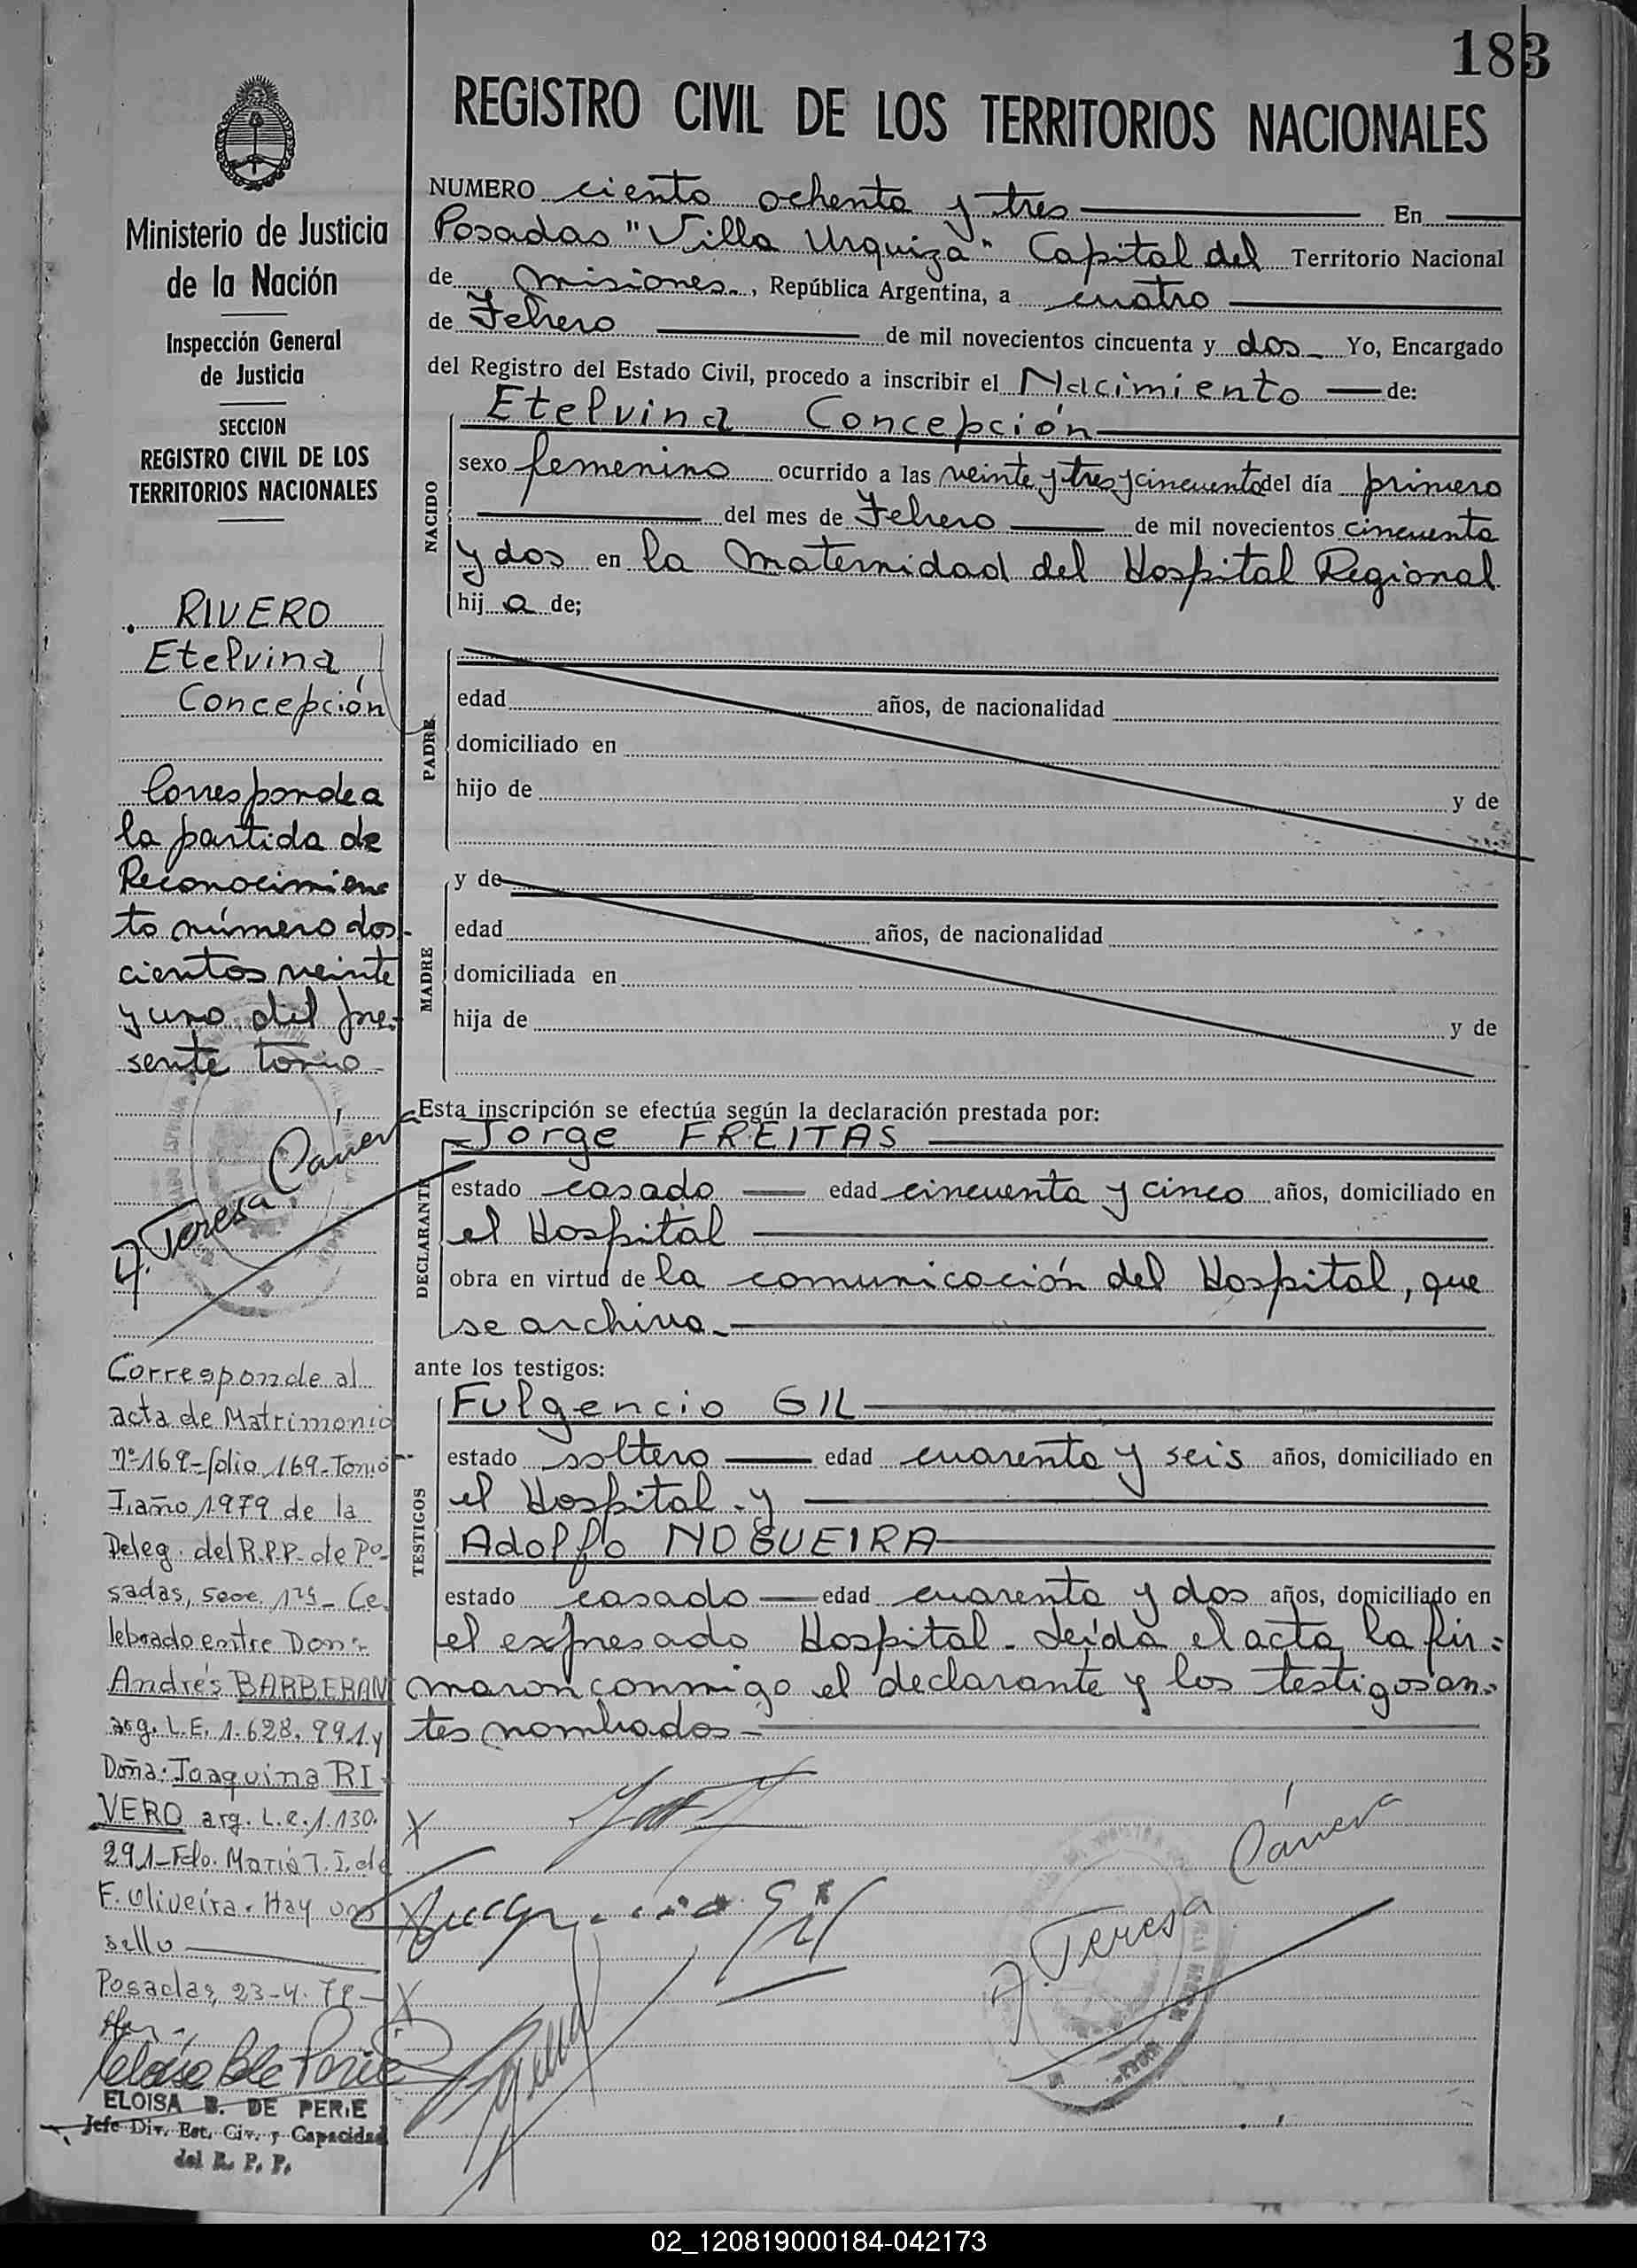 183
REGISTRO CIVIL DE LOS TERRITORIOS NACIONALES
Ministerio de Justicia
de la Nación
Inspección General
de Justicia
SECCION
REGISTRO CIVIL DE LOS
TERRITORIOS NACIONALES
RIVERO
Etelvina
Concepción
Corresponde a
la partida de
Reconocimien
to número dos-
cientos veinte
y uno del pre-
sente tomo
A. Teresa Cánera
Corresponde al
acta de Matrimonio
nº 169-folio 169-Tomo
I, año 1979 de la
Deleg. del R.P.P. de Po-
sadas, secc. 1ra- Ce
lebrado entre Don:
Andrés BARBERAN
arg. L.E. 1.628.991 y
Doña: Joaquina RI
VERO arg. L.C. 1.130.
291-Fdo. María T. I. de
F. Oliveira. Hay un
sello
Posadas, 23-4-79-
ELOISA B. DE PERIE
Jefe Div. Est. Civ. y Capacidad
del R. P. P.
NUMERO ciento ochenta y tres En
Posadas "Villa Urquiza" Capital del Territorio Nacional
de Misiones, República Argentina, a cuatro
de Febrero de mil novecientos cincuenta y dos Yo, Encargado
del Registro del Estado Civil, procedo a inscribir el Nacimiento de:
Etelvina Concepción
NACIDO
sexo femenino ocurrido a las veinte y tres y cincuenta del día primero
del mes de Febrero de mil novecientos cincuenta
y dos en la Maternidad del Hospital Regional
hij a de;
PADRE
edad años, de nacionalidad
domiciliado en
hijo de y de
MADRE
y de
edad años, de nacionalidad
domiciliada en
hija de y de
Esta inscripción se efectúa según la declaración prestada por:
DECLARANTE
Jorge FREITAS
estado casado edad cincuenta y cinco años, domiciliado en
el Hospital
obra en virtud de la comunicación del Hospital, que
se archiva.
ante los testigos:
TESTIGOS
Fulgencio GIL
estado soltero edad cuarenta y seis años, domiciliado en
el Hospital y
Adolfo NOGUEIRA
estado casado edad cuarenta y dos años, domiciliado en
el expresado Hospital. Leída el acta la fir=
maron conmigo el declarante y los testigos an=
tes nombrados
X
X Gil
X
A. Teresa Cánera
02_120819000184-042173